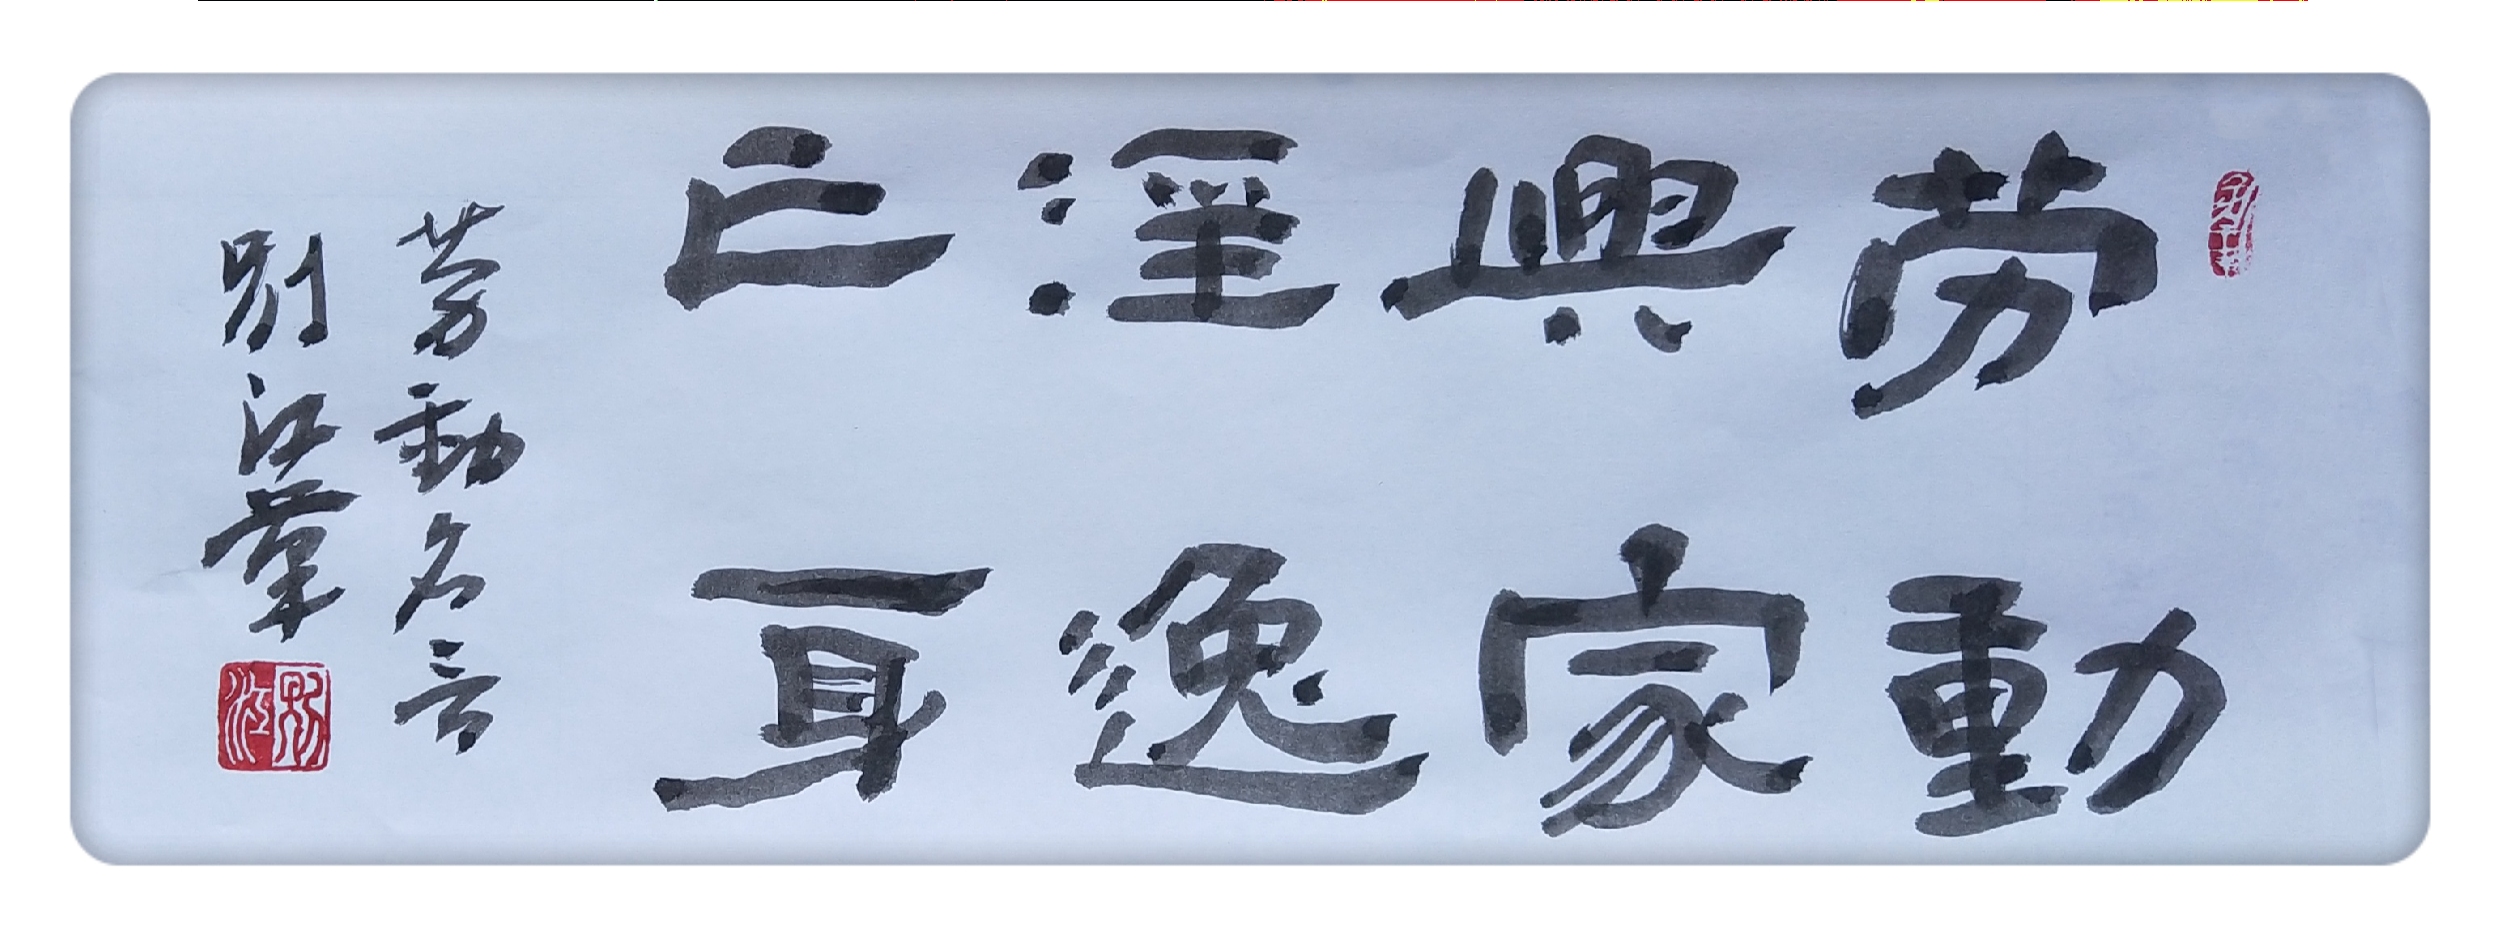 劳動
興家
淫逸
亡身
劳動名言
别江
别江